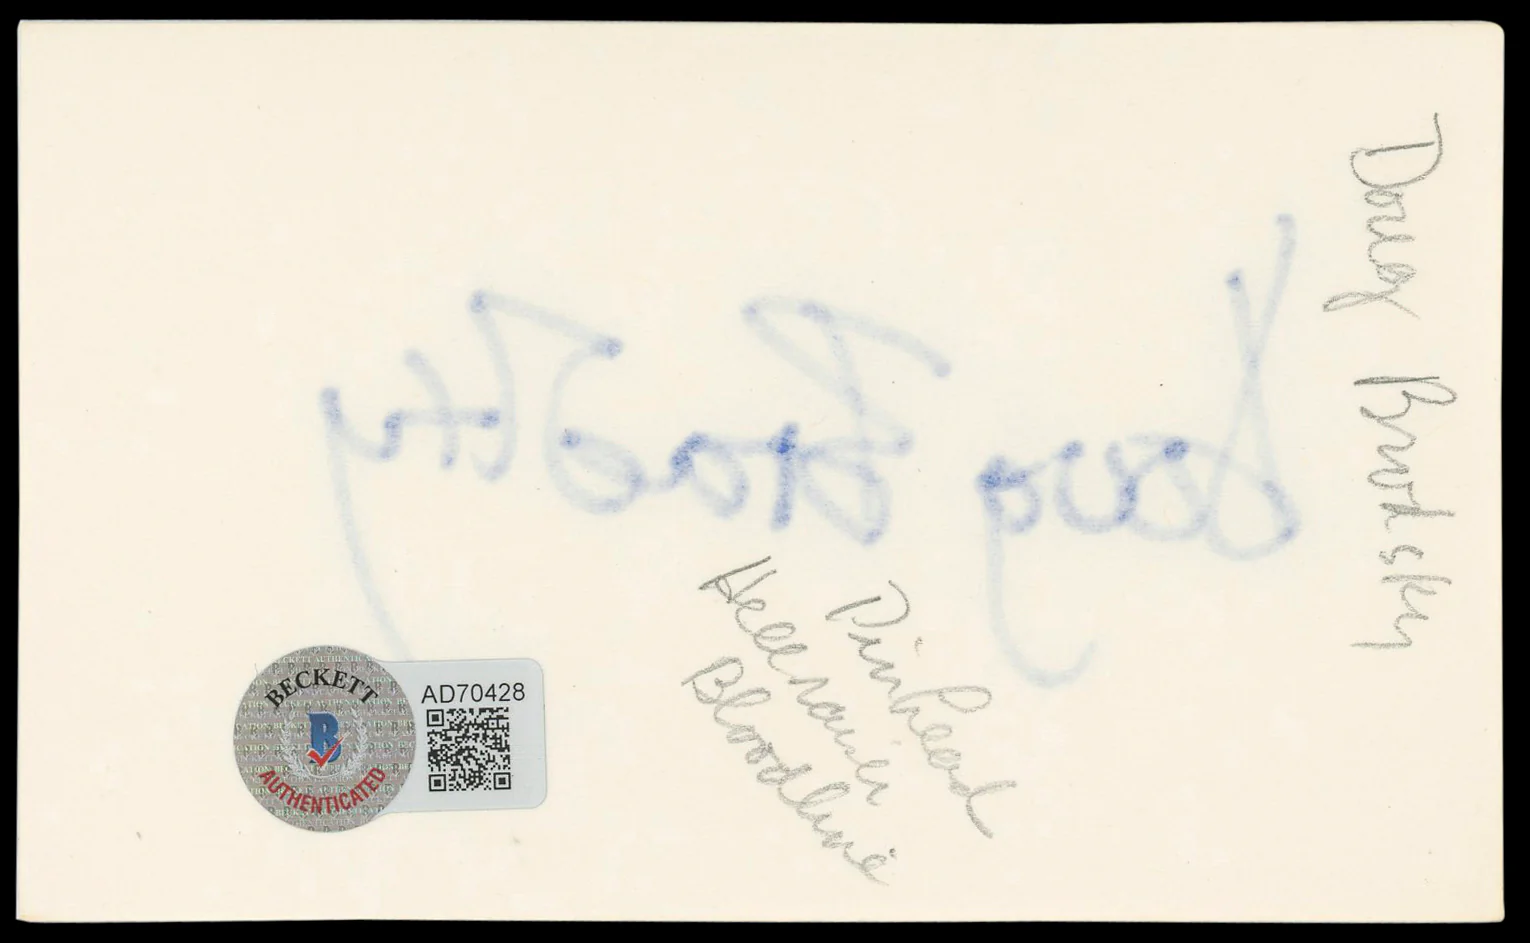 Doug Brodsky
Doug Bradley
Pinhead
Hellraiser
Bloodline
BECKETT
AUTHENTICATED
AD70428